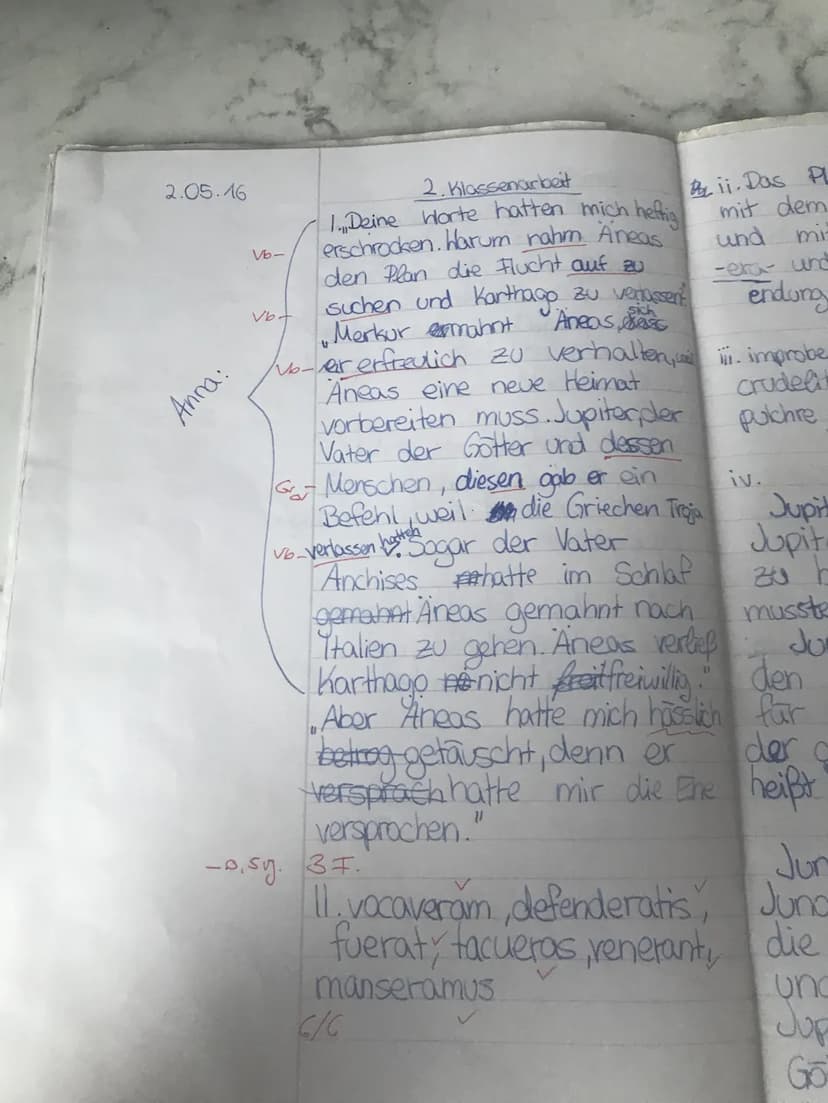 2.05.16
2. Klassenarbeit
1. „Deine Worte hatten mich heftig
Vb- erschrocken. Warum nahm Äneas
den Plan die Flucht auf zu
Vb- suchen und Karthago zu verlassen?"
„Merkur ermahnt Äneas, sich
Vb- er erfreulich zu verhalten, weil
Äneas eine neue Heimat
Anna:
vorbereiten muss. Jupiter, der
Vater der Götter und dessen
Gr- Menschen, diesen gab er ein
Befehl, weil die Griechen Troja
Vb- verlassen hatten. Sogar der Vater
Anchises hatte im Schlaf
gemahnt Äneas gemahnt nach
Italien zu gehen. Äneas verließ
Karthago nicht freiwillig."
„Aber Äneas hatte mich hässlich
betrog getäuscht, denn er
versprach hatte mir die Ehe
versprochen."
3 F.
II. vocaveram, defenderatis,
fuerat, tacueras, venerant,
manseramus
6/6
ii. Das Pl
mit dem
und mi
-era- und
endung
iii. improbe
crudelit
pulchre
iv.
Jupit
Jupit
zu h
musste
Ju
den
für
der g
heißt
Jun
Juno
die
und
Jup
Gö